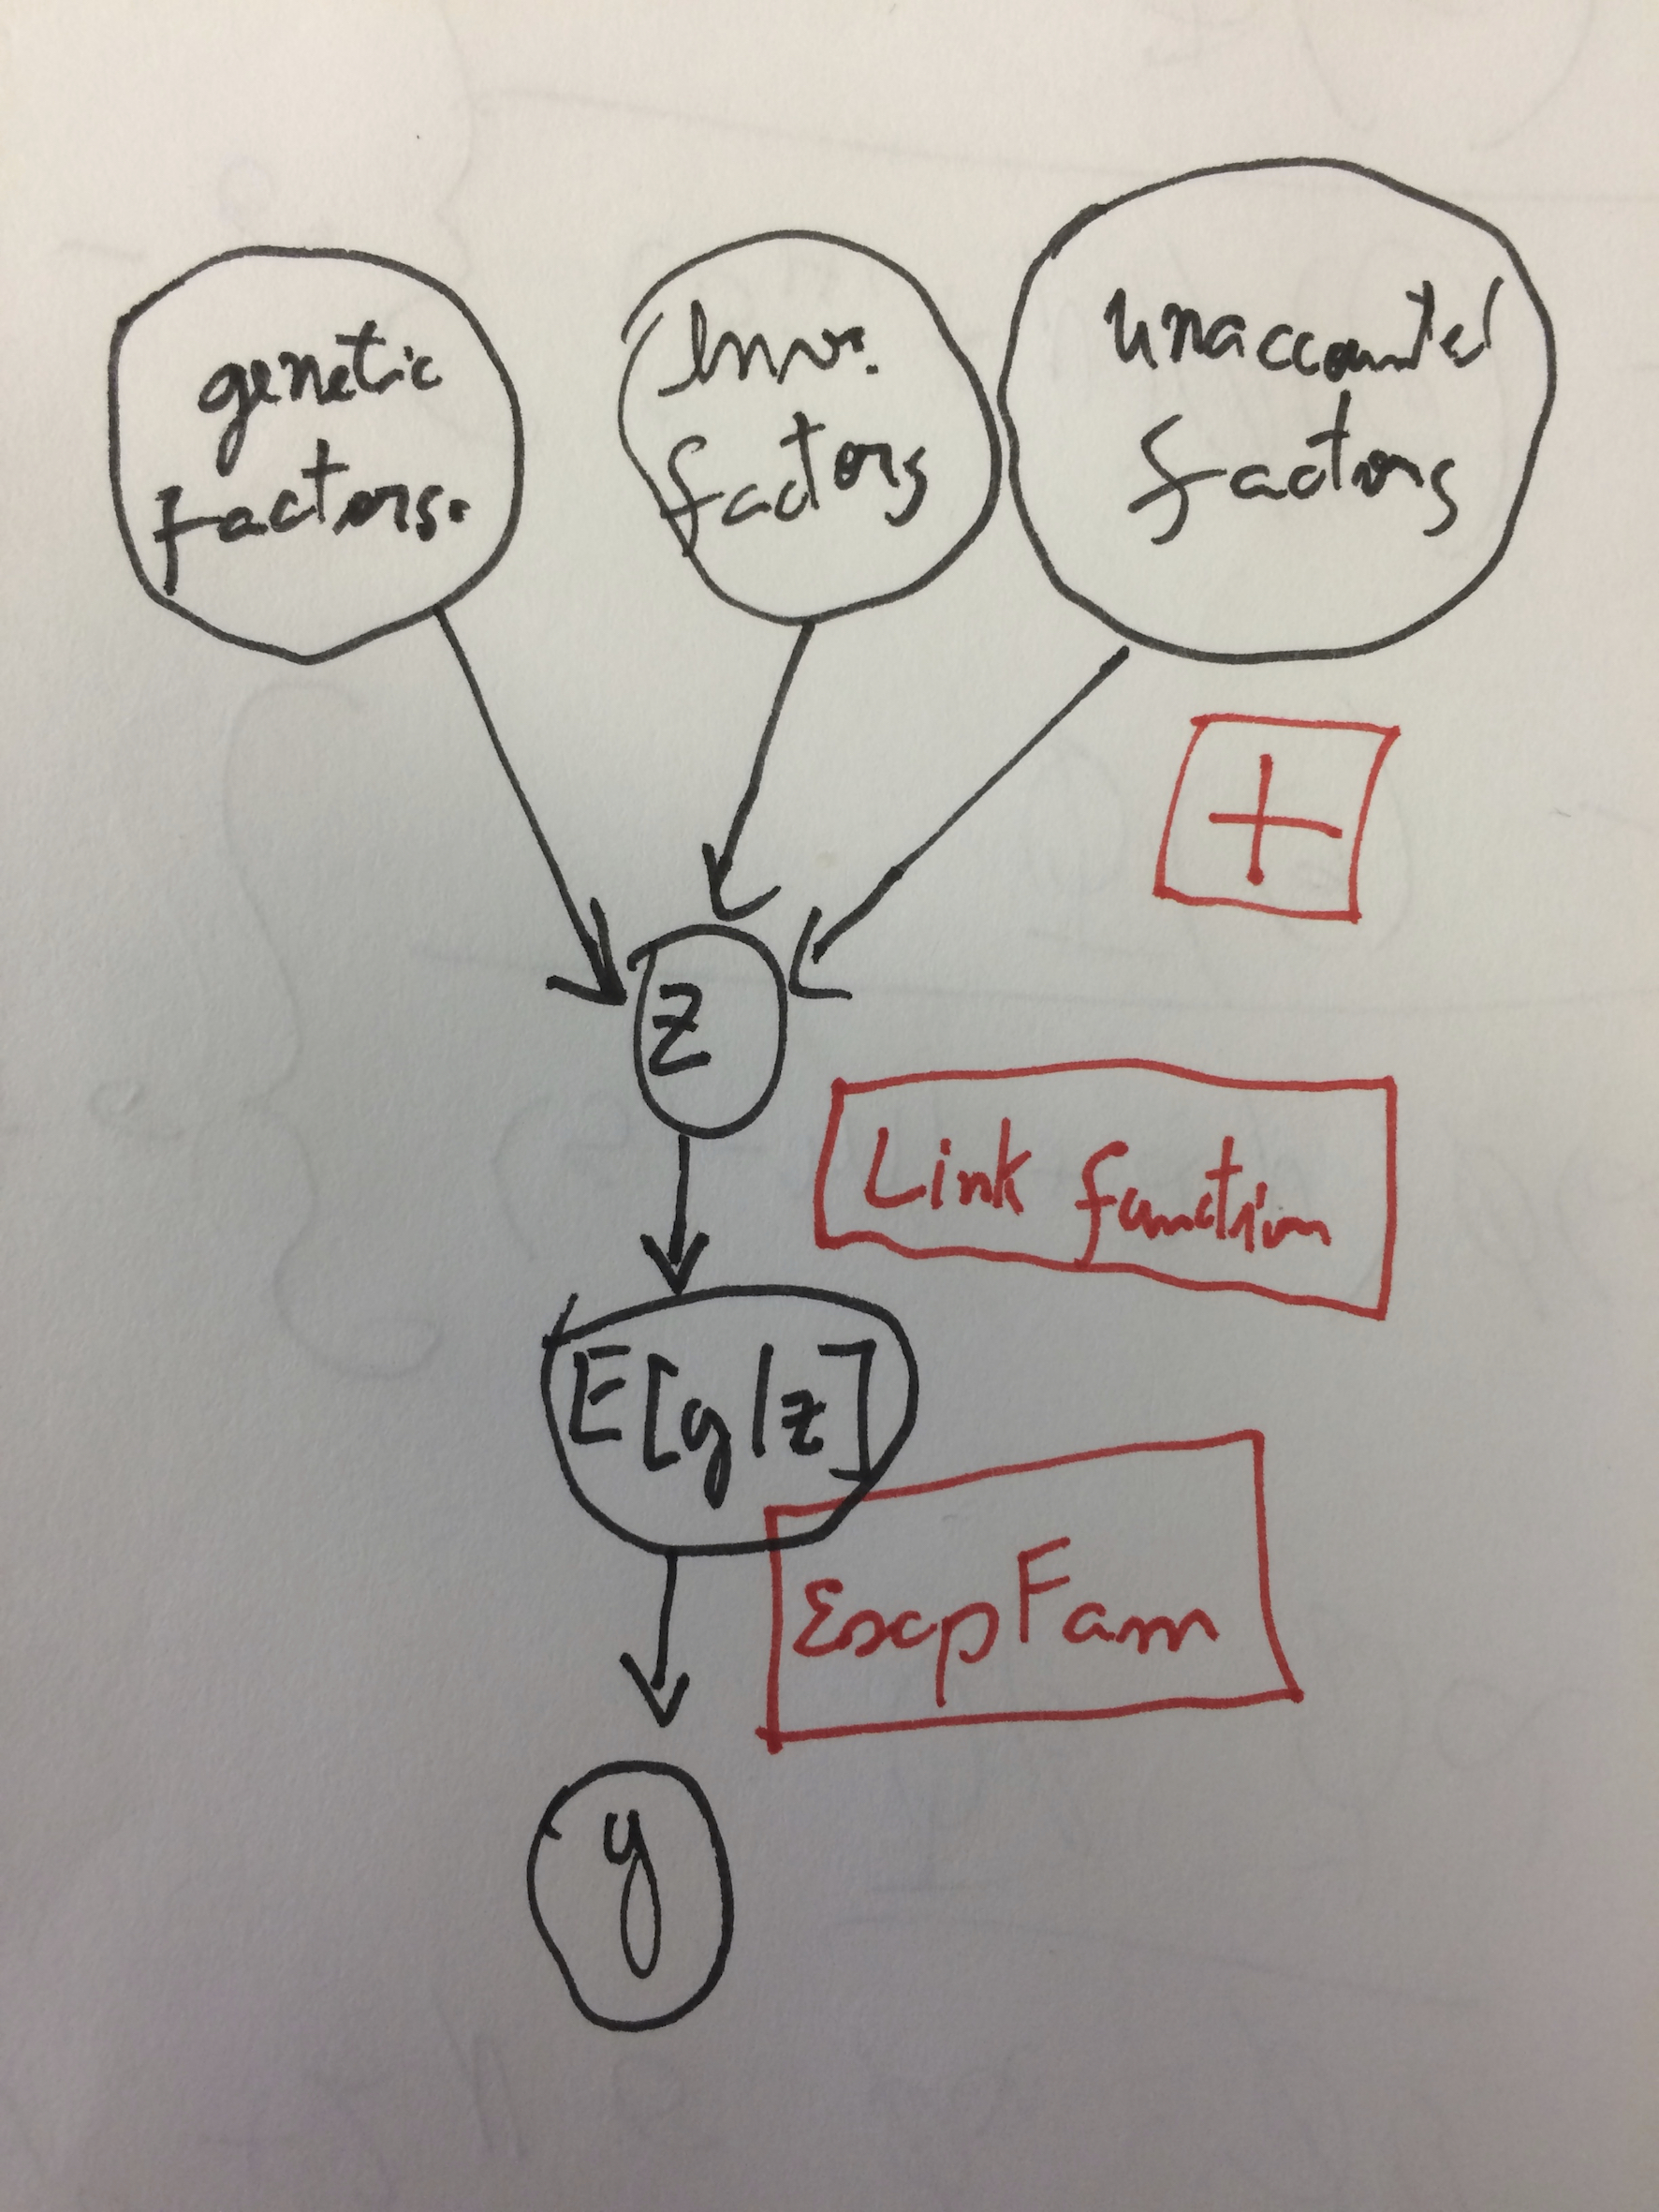 genetic
factors.
Env.
factors
unaccounted
factors
+
z
Link function
E[y|z]
ExpFam
y